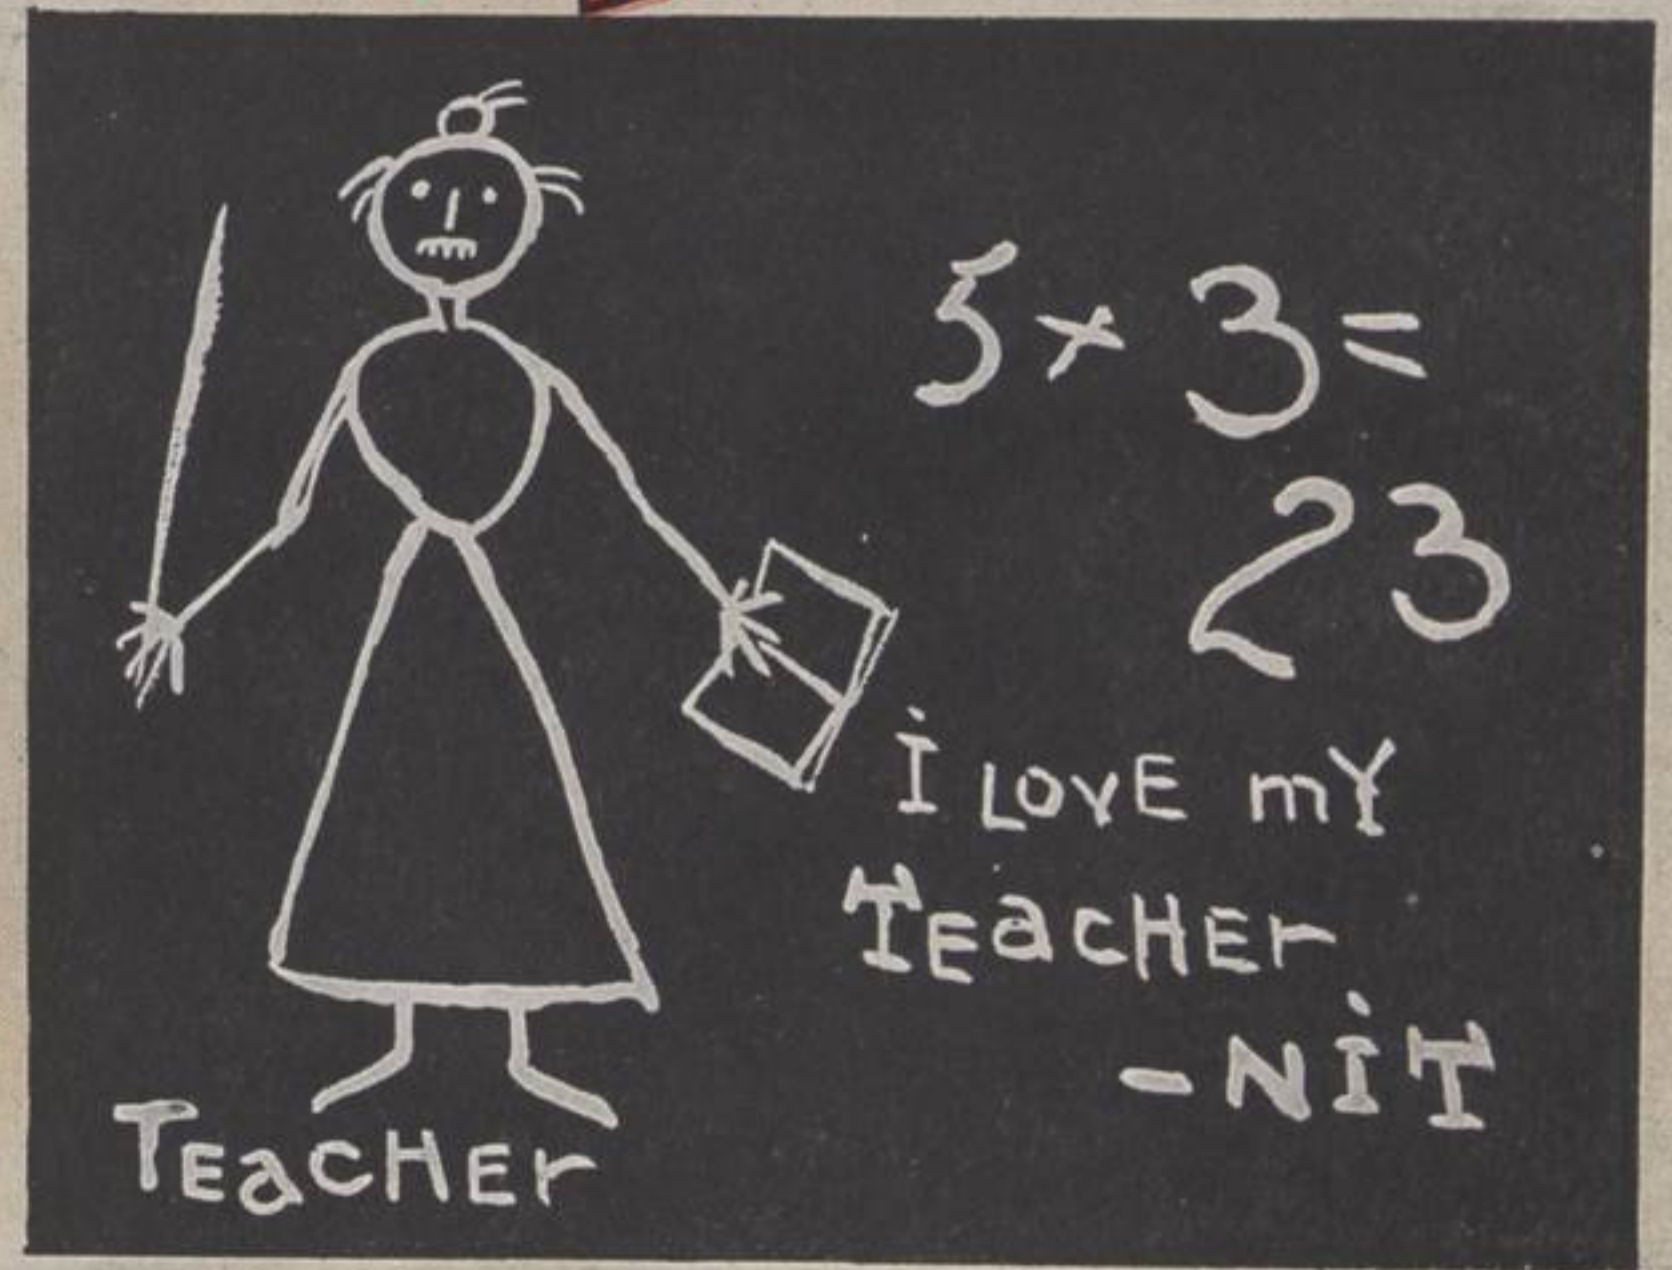 5 × 3 =
23
i LOVE mY
TEacHEr
- NiT
TEacHEr